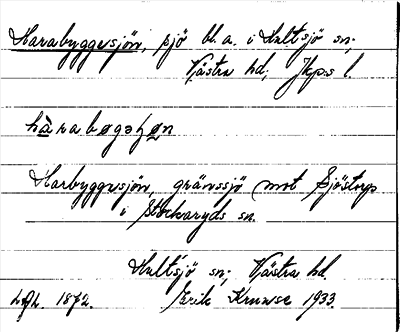 Harabyggesjön, sjö bl. a. i Hultsjö sn;
Västra hd; Jkps l.
hàrabøgəʃøn
Harbyggesjön, gränssjö mot Sjöstorp
i Stockaryds sn.
Hultsjö sn; Västra hd.
1872. Erik Kruuse 1933.